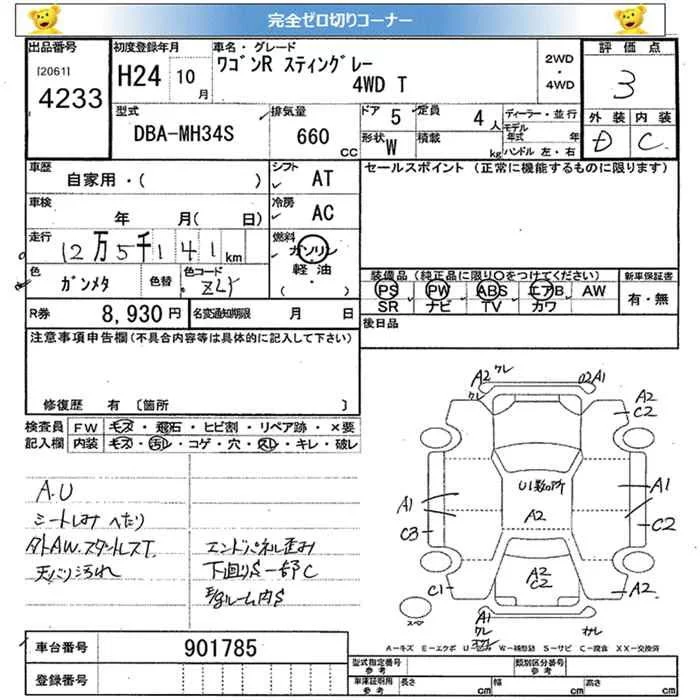 完全ゼロ切りコーナー
出品番号
[2061]
4233
初度登録年月
H24 10月
車名・グレード
ワゴンR スティングレー
4WD T
2WD
・
4WD
評価点
3
外装 内装
D C
型式
DBA-MH34S
排気量
660 cc
ドア 5
定員 4 人
形状 W
積載 kg
ディーラー・並行
モデル年式 年
ハンドル 左・右
車歴
自家用・( )
シフト
AT
車検
年 月( 日)
冷房
AC
走行
12万5千141km
燃料
ガソリン
軽油
( ・ )
色
ガンメタ
色替
色コード
ZLY
R券 8,930円
名変通知期限 月 日
セールスポイント (正常に機能するものに限ります)
装備品(純正品に限り○をつけてください)
PS PW ABS エアB AW
SR ナビ TV カワ
新車保証書
有・無
後日品
注意事項申告欄(不具合内容等は具体的に記入して下さい)
修復歴 有 〔箇所 〕
検査員 FW キズ・飛石・ヒビ割・リペア跡・×要
記入欄 内装 キズ・汚レ・コゲ・穴・スレ・キレ・破レ
A.U
シートしみ へたり
タトAW.スタットレスT.
天バリ汚れ
エンドパネル歪み
下廻りS 一部C
ルーム内S
A2 クレ
クレ
A1
A2
C2
U1数ヶ所
A2
A1
C3
A1
C2
A2
C2
C1
A2
A1
クレ
サレ
スペア
A-キズ E-エクボ U-ヒズミ W-補修跡 S-サビ C-腐食 XX-交換済
車台番号 901785
登録番号
型式指定番号
参考
類別区分番号
参考
車庫証明用
参考
長さ cm
幅 cm
高さ cm